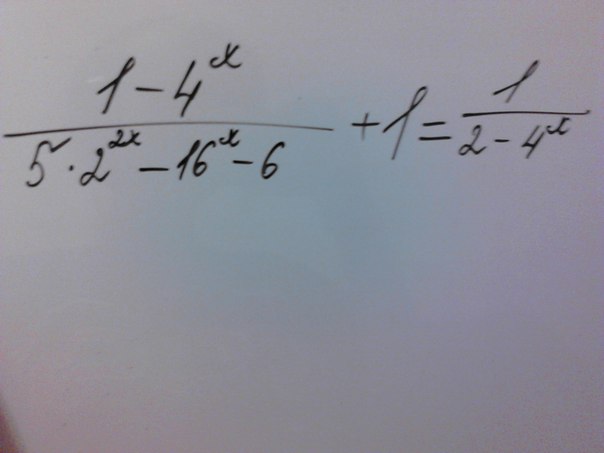 (1 - 4^x)/(5 · 2^(2x) - 16^x - 6) + 1 = 1/(2 - 4^x)